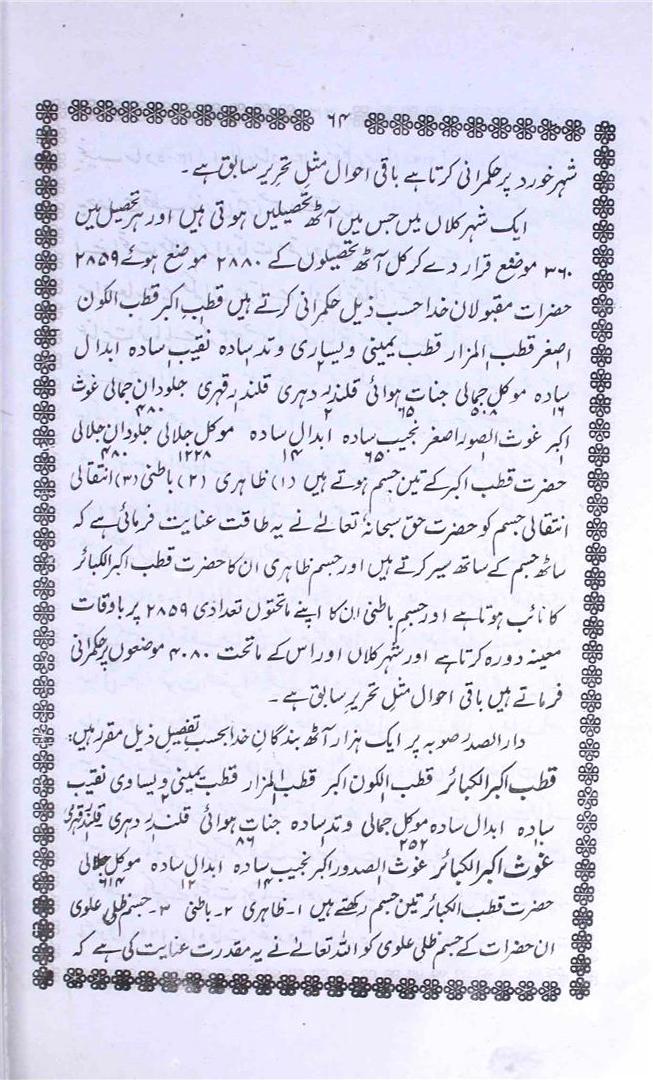 ۶۴
شہر خورد پر حکمرانی کرتا ہے باقی احوال مثل تحریر سابق ہے۔
ایک شہر کلاں میں جس میں آٹھ تحصیلیں ہوتی ہیں اور ہر تحصیل میں
۳۶۰ موضع قرار دے کر کل آٹھ تحصیلوں کے ۲۸۸۰ موضع ہوئے ۲۸۵۹
حضرات مقبولان خدا حسب ذیل حکمرانی کرتے ہیں قطب اکبر قطب الکون
اصغر قطب المزار قطب یمینی و یساری وتد سادہ نقیب سادہ ابدال
سادہ موکل جمالی جنات ہوائی قلندر دہری قلندر قہری جلودان جمالی غوث
۱۶ ۵۰۸ ۶۵ ۲ ۴۸۰
اکبر غوث الصور اصغر نجیب سادہ ابدال سادہ موکل جلالی جلودان جلالی
۶۵۰ ۱۴ ۱۲۲۸ ۴۸۰
حضرت قطب اکبر کے تین جسم ہوتے ہیں (۱) ظاہری (۲) باطنی (۳) انتقالی
انتقالی جسم کو حضرت حق سبحانہٗ تعالےٰ نے یہ طاقت عنایت فرمائی ہے کہ
ساٹھ جسم کے ساتھ سیر کرتے ہیں اور جسم ظاہری ان کا حضرت قطب اکبر الکبائر
کا نائب ہوتا ہے اور جسم باطنی ان کا اپنے ماتحتوں تعدادی ۲۸۵۹ پر باوقات
معینہ دورہ کرتا ہے اور شہر کلاں اور اس کے ماتحت ۴۰۸۰ موضعوں پر حکمرانی
فرماتے ہیں باقی احوال مثل تحریر سابق ہے۔
دار الصدر صوبہ پر ایک ہزار آٹھ بندگان خدا بحسب تفصیل ذیل مقرر ہیں:
قطب اکبر الکبائر قطب الکون اکبر قطب المزار قطب یمینی و یساوی نقیب
سادہ ابدال سادہ موکل جمالی وتد سادہ جنات ہوائی قلندر دہری قلندر قہری
۲۵۲ ۸۶
غوث اکبر الکبائر غوث الصدور اکبر نجیب سادہ ابدال سادہ موکل جلالی
۱۴ ۱۲ ۶۱۴
حضرت قطب الکبائر تین جسم رکھتے ہیں ۱۔ ظاہری ۲۔ باطنی ۳۔ جسم ظلی علوی
ان حضرات کے جسم ظلی علوی کو اللہ تعالےٰ نے یہ مقدرت عنایت کی ہے کہ